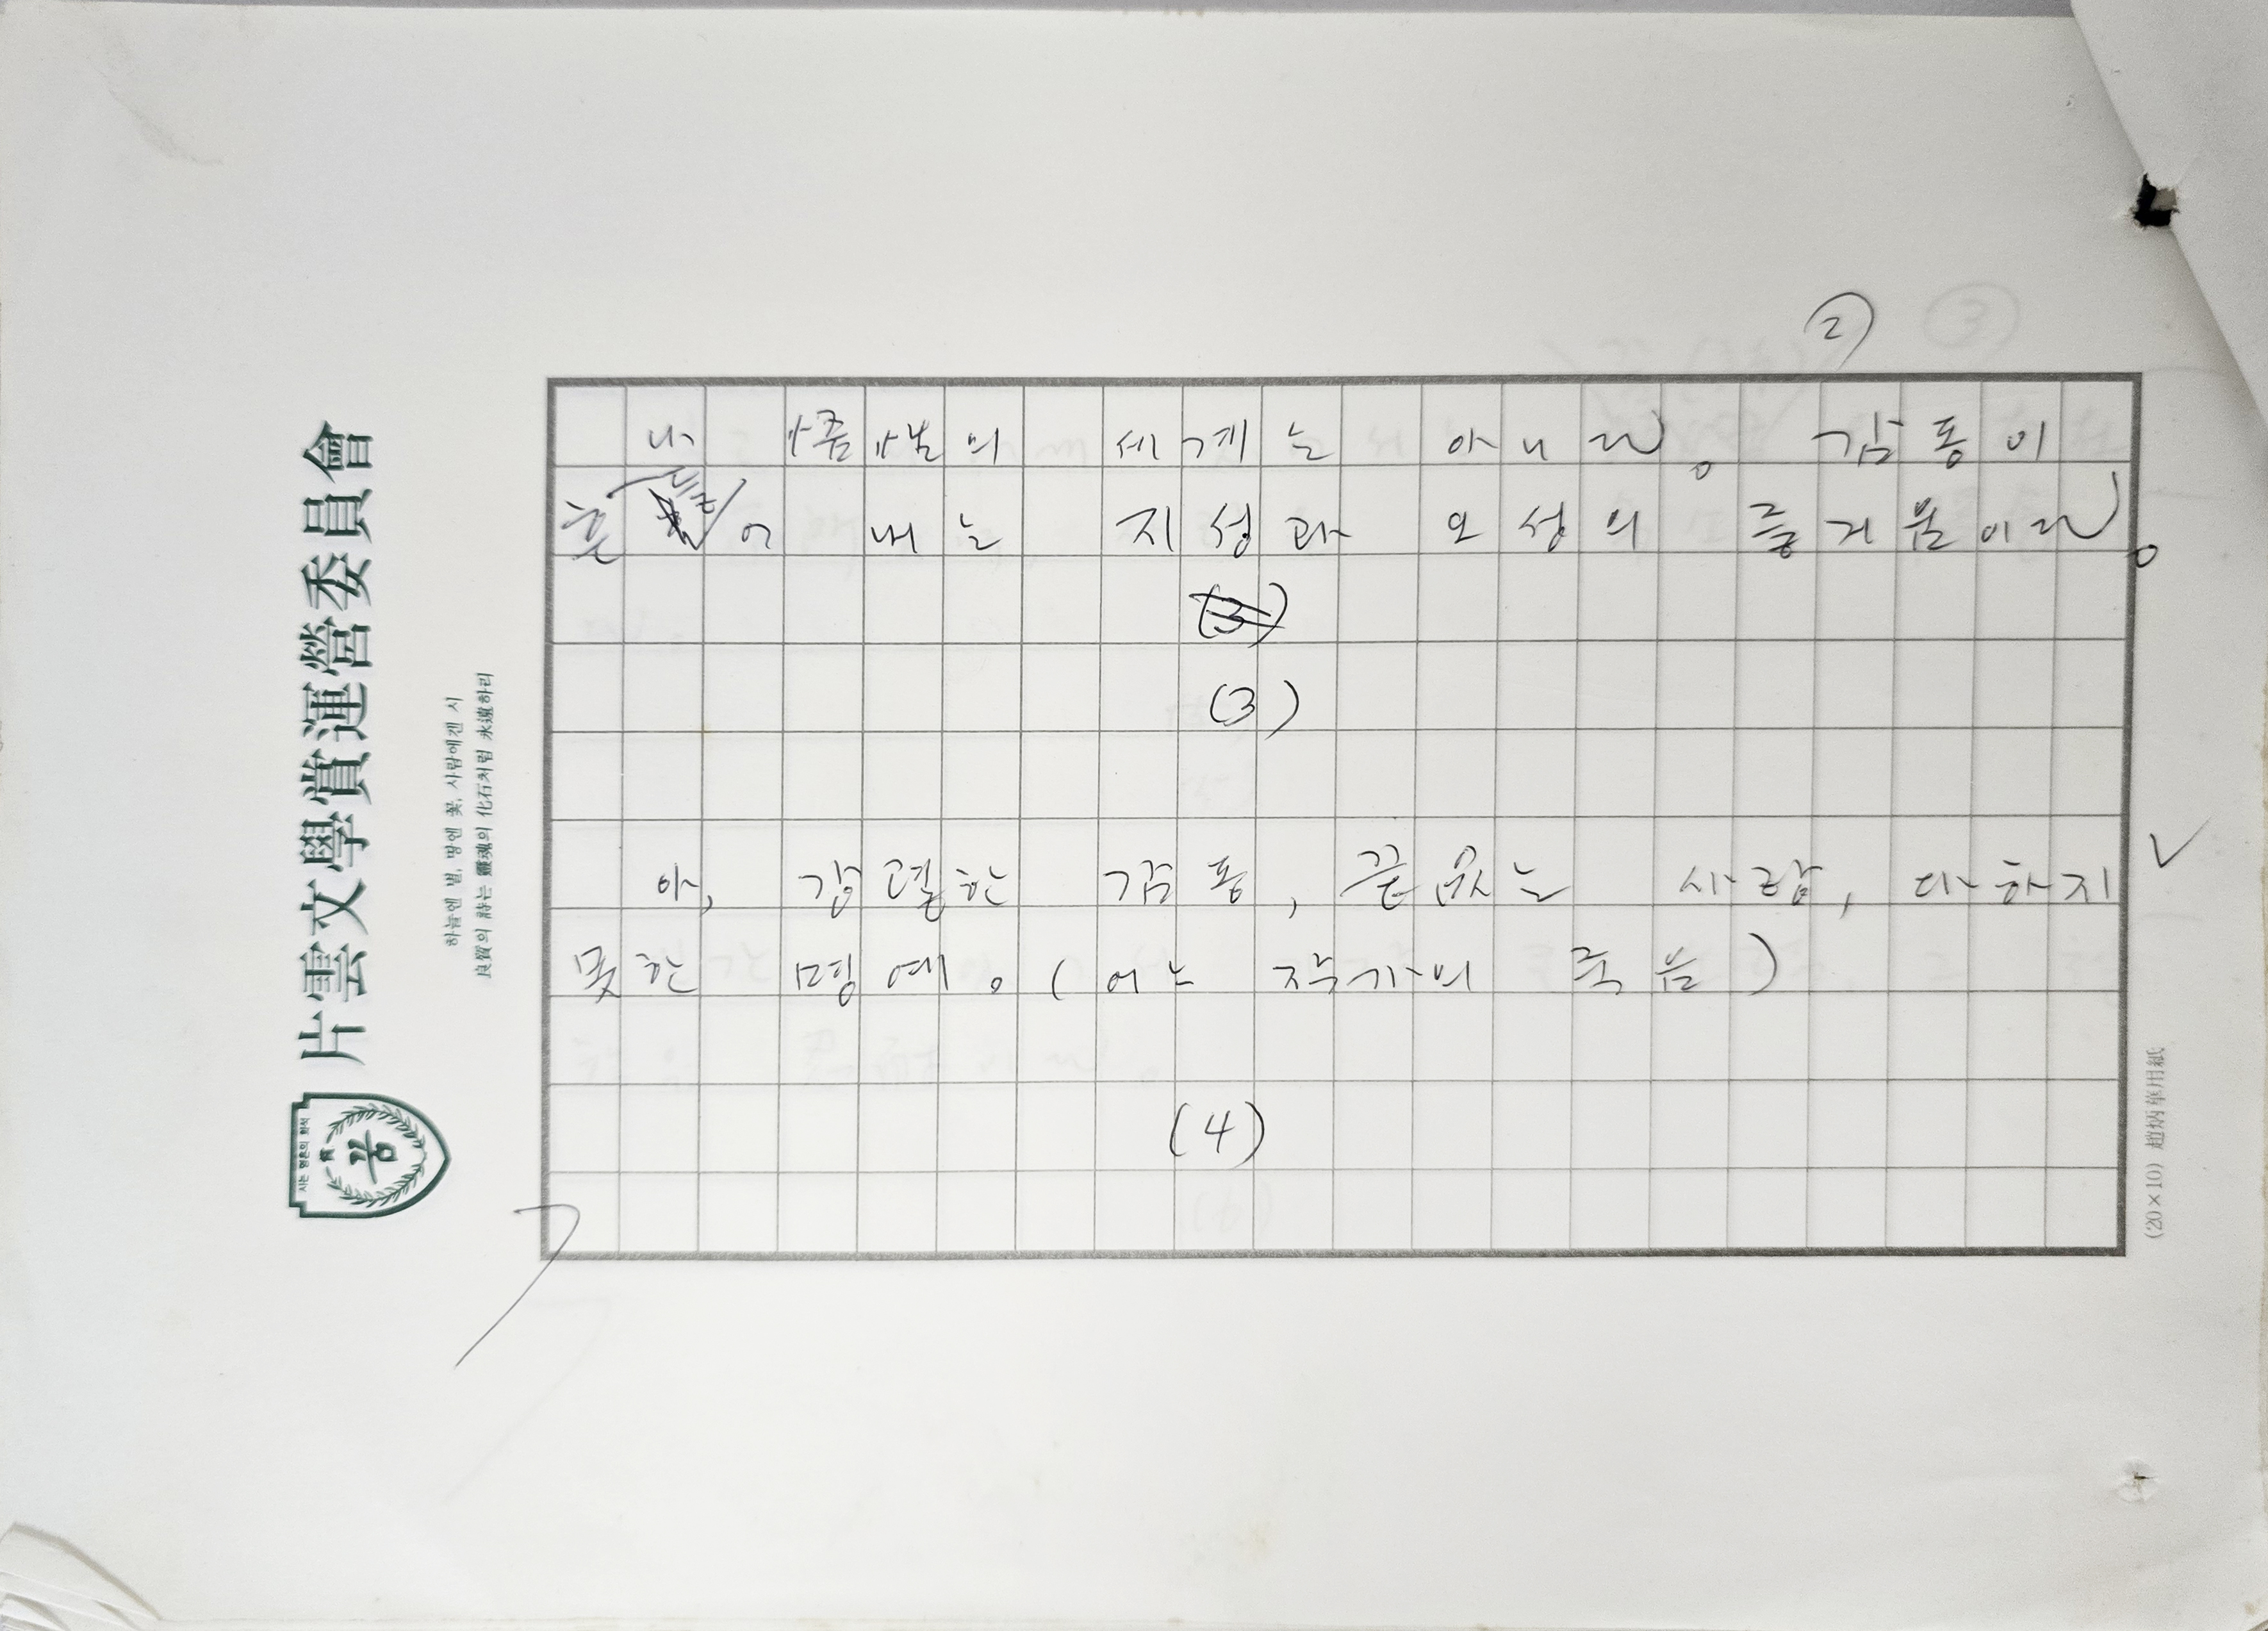 ②
나 의 세계는 아니다。 감동이
흔들어 내는 지성과 오성의 즐거움이다。
(3)
(3)
아, 강렬한 감동, 끝없는 사랑, 다하지
못한 명예。(어느 작가의 죽음)
(4)
片雲文學賞運營委員會
하늘엔 별, 땅엔 꽃, 사람에겐 시
良質의 詩는 靈魂의 化石처럼 永遠하리
시는 영혼의 화석
꿈
(20×10) 趙炳華用紙